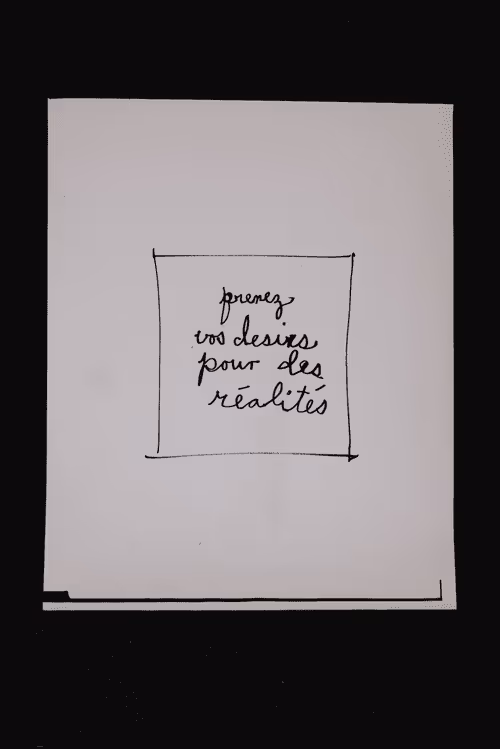 prenez
vos desirs
pour des
réalités